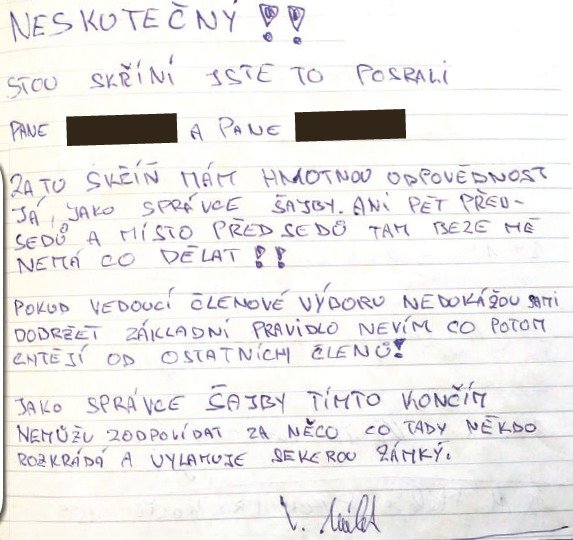 NESKUTEČNÝ!!
STOU SKŘÍNÍ JSTE TO POSRALI
PANE A PANE
ZA TU SKŘÍŇ MÁM HMOTNOU ODPOVĚDNOST
JÁ, JAKO SPRÁVCE ŠAJBY. ANI PĚT PŘED-
SEDŮ A MÍSTO PŘEDSEDŮ TAM BEZE MĚ
NEMÁ CO DĚLAT!!
POKUD VEDOUCÍ ČLENOVÉ VÝBORU NEDOKÁŽOU SAMI
DODRŽET ZÁKLADNÍ PRAVIDLO NEVÍM CO POTOM
CHTĚJÍ OD OSTATNÍCH ČLENŮ!
JAKO SPRÁVCE ŠAJBY TÍMTO KONČÍM
NEMŮŽU ZODPOVÍDAT ZA NĚCO CO TADY NĚKDO
ROZKRÁDÁ A VYLAMUJE SEKEROU ZÁMKY.